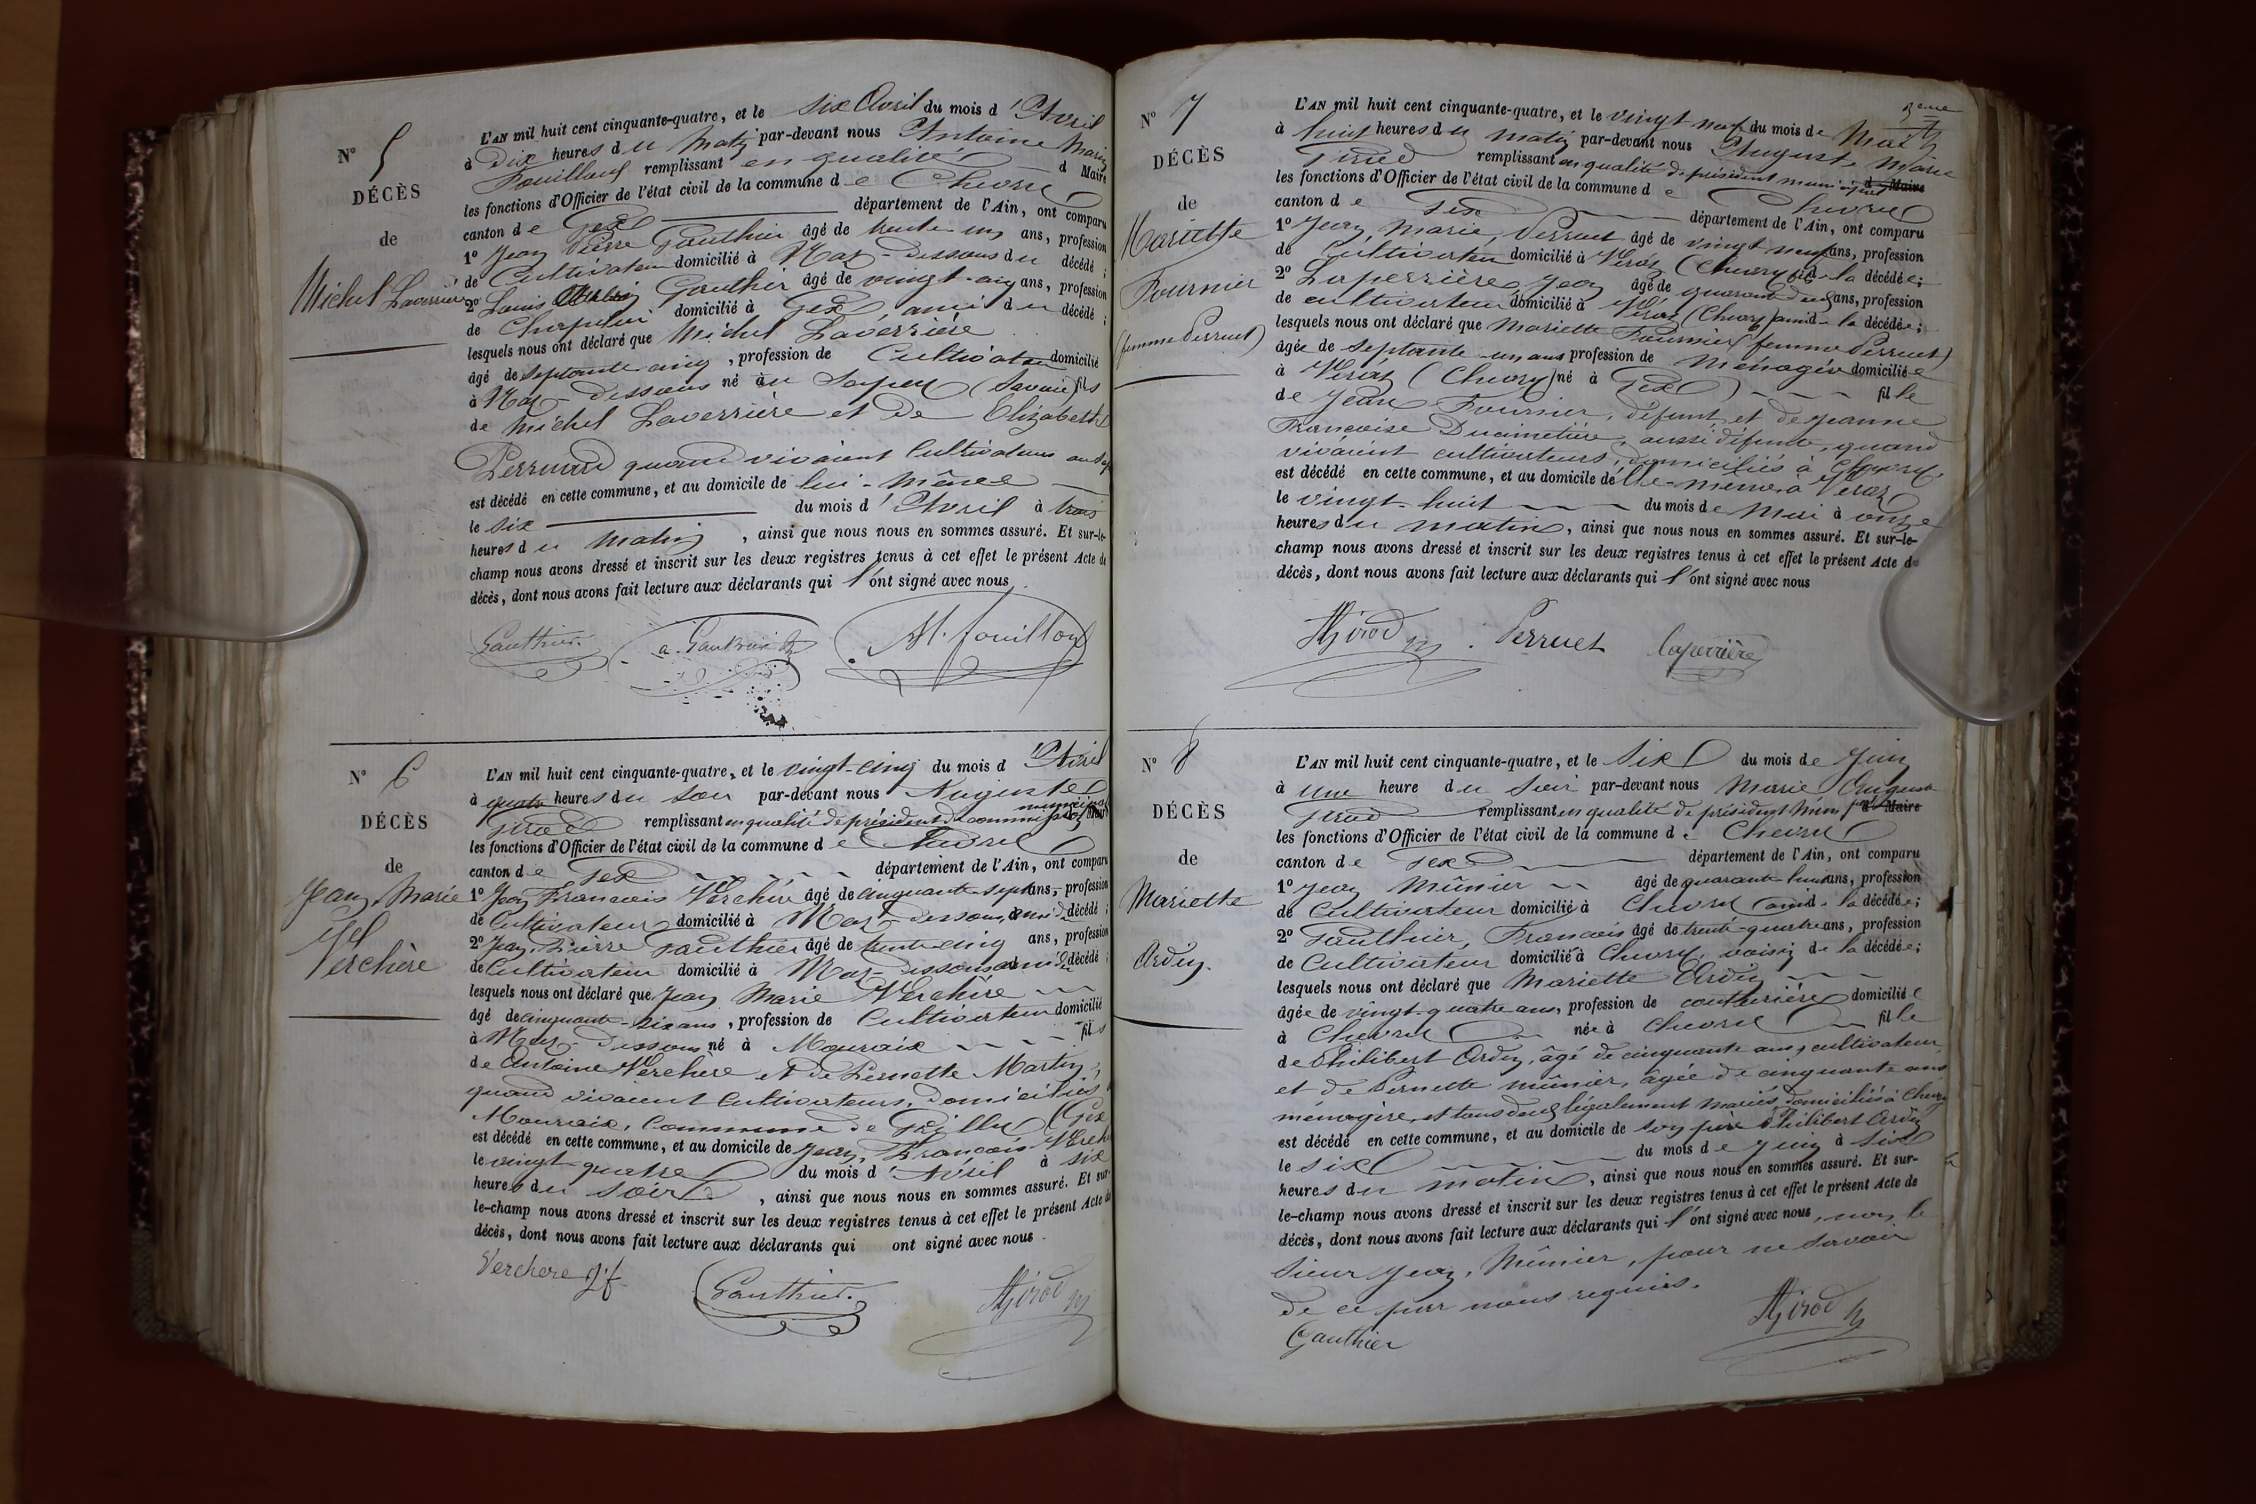 N° 5
DÉCÈS
de
Michel Laverrière
L'AN mil huit cent cinquante-quatre, et le six Avril du mois d'Avril
à Dix heures du Matin par-devant nous Antoine Marie
Fouilloux remplissant en qualité d Maire
les fonctions d'Officier de l'état civil de la commune de Chevry
canton de Gex département de l'Ain, ont comparu
1° Jean Pierre Gauthier âgé de trente cinq ans, profession
de Cultivateur domicilié à Naz-Dessous du décédé ;
2° Louis Gauthier âgé de vingt-cinq ans, profession
de domicilié à Gex, ami du décédé ;
lesquels nous ont déclaré que Michel Laverrière
âgé de septante cinq, profession de Cultivateur domicilié
à Naz-Dessous né au Sapey (Savoie) fils
de Michel Laverrière et de Elizabeth
quand vivaient Cultivateurs au
est décédé en cette commune, et au domicile de lui-même
le six du mois d'Avril à trois
heures du Matin, ainsi que nous nous en sommes assuré. Et sur-le-
champ nous avons dressé et inscrit sur les deux registres tenus à cet effet le présent Acte de
décès, dont nous avons fait lecture aux déclarants qui l'ont signé avec nous
Gauthier. a. Gauthier M. fouilloux
N° 6
DÉCÈS
de
Jean, Marie
Verchère
L'AN mil huit cent cinquante-quatre, et le vingt-cinq du mois d'Avril
à quatre heures du soir par-devant nous Auguste
Girod remplissant en qualité de président de commission municipale
les fonctions d'Officier de l'état civil de la commune de Chevry
canton de Gex département de l'Ain, ont comparu
1° Jean François Verchère âgé de cinquante-sept ans, profession
de Cultivateur domicilié à Naz-dessous, ami du décédé ;
2° Jean, Pierre Gauthier âgé de trente-cinq ans, profession
de Cultivateur domicilié à Naz-dessous, ami du décédé ;
lesquels nous ont déclaré que Jean Marie Verchère
âgé de cinquante-six ans, profession de Cultivateur domicilié
à Naz-Dessous né à Mourex fils
de Antoine Verchere et de Pernette Martin,
quand vivaient Cultivateurs, domiciliés
commune de Grilly (Gex
est décédé en cette commune, et au domicile de Jean, François Verch
le vingt-quatre du mois d'Avril à six
heures du soir, ainsi que nous nous en sommes assuré. Et sur-
le-champ nous avons dressé et inscrit sur les deux registres tenus à cet effet le présent Acte de
décès, dont nous avons fait lecture aux déclarants qui ont signé avec nous.
Verchere j.f. Gauthier. AGirod
3eme
N° 7
DÉCÈS
de
Mariette
Fournier
(femme Perruet)
L'AN mil huit cent cinquante-quatre, et le vingt neuf du mois de Mai
à huit heures du matin par-devant nous Auguste Marie
Girod remplissant en qualité de président municipal d Maire
les fonctions d'Officier de l'état civil de la commune de Chevry
canton de Gex département de l'Ain, ont comparu
1° Jean, Marie, Perruet âgé de vingt neuf ans, profession
de Cultivateur domicilié à Véraz (Chevry) fils de la décédée ;
2° Laperrière, Jean âgé de quarante deux ans, profession
de cultivateur domicilié à Véraz (Chevry) ami de la décédée ;
lesquels nous ont déclaré que Mariette Fournier (femme Perruet)
âgée de septante-un ans profession de Ménagère domiciliée
à Véraz (Chevry) né à Gex fille
de Jean Fournier, défunt, et de Jeanne
Françoise Ducimetière, aussi défunte, quand
vivaient cultivateurs, domiciliés à Chevry,
est décédé en cette commune, et au domicile d'elle-même, à Veraz
le vingt-huit du mois de Mai à onze
heures du matin, ainsi que nous nous en sommes assuré. Et sur-le-
champ nous avons dressé et inscrit sur les deux registres tenus à cet effet le présent Acte de
décès, dont nous avons fait lecture aux déclarants qui l'ont signé avec nous
AGirod Perruet Laperrière
N° 8
DÉCÈS
de
Mariette
Ardin.
L'AN mil huit cent cinquante-quatre, et le Six du mois de Juin
à Une heure du Soir par-devant nous Marie Auguste
Girod remplissant en qualité de président d Maire
les fonctions d'Officier de l'état civil de la commune de Chevry
canton de Gex département de l'Ain, ont comparu
1° Jean Mûnier âgé de quarante huit ans, profession
de Cultivateur domicilié à Chevry ami de la décédée ;
2° Gauthier, François âgé de trente-quatre ans, profession
de Cultivateur domicilié à Chevry, voisin de la décédée ;
lesquels nous ont déclaré que Mariette Ardin
âgée de vingt-quatre ans, profession de couturière domiciliée
à Chevry née à Chevry fille
de Philibert Ardin, âgé de cinquante ans, cultivateur,
et de Pernette mûnier, âgée de cinquante ans
ménagère, et tous deux légalement mariés, domiciliés à Chevry
est décédé en cette commune, et au domicile de son père Philibert Ardin
le six du mois de Juin à six
heures du matin, ainsi que nous nous en sommes assuré. Et sur-
le-champ nous avons dressé et inscrit sur les deux registres tenus à cet effet le présent Acte de
décès, dont nous avons fait lecture aux déclarants qui l'ont signé avec nous, non le
sieur Jean, Mûnier, pour ne savoir
de ce par nous requis.
Gauthier AGirod